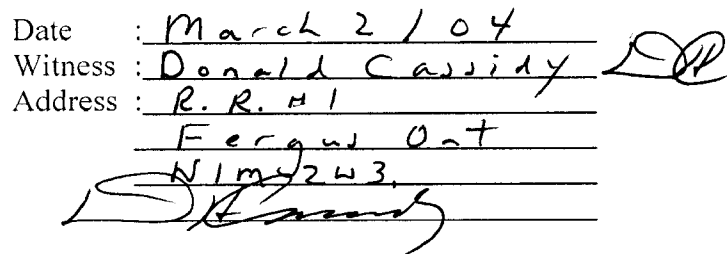 Date : March 2 / 04
Witness : Donald Cassidy
Address : R. R. #1
Fergus Ont
N1M 2W3.